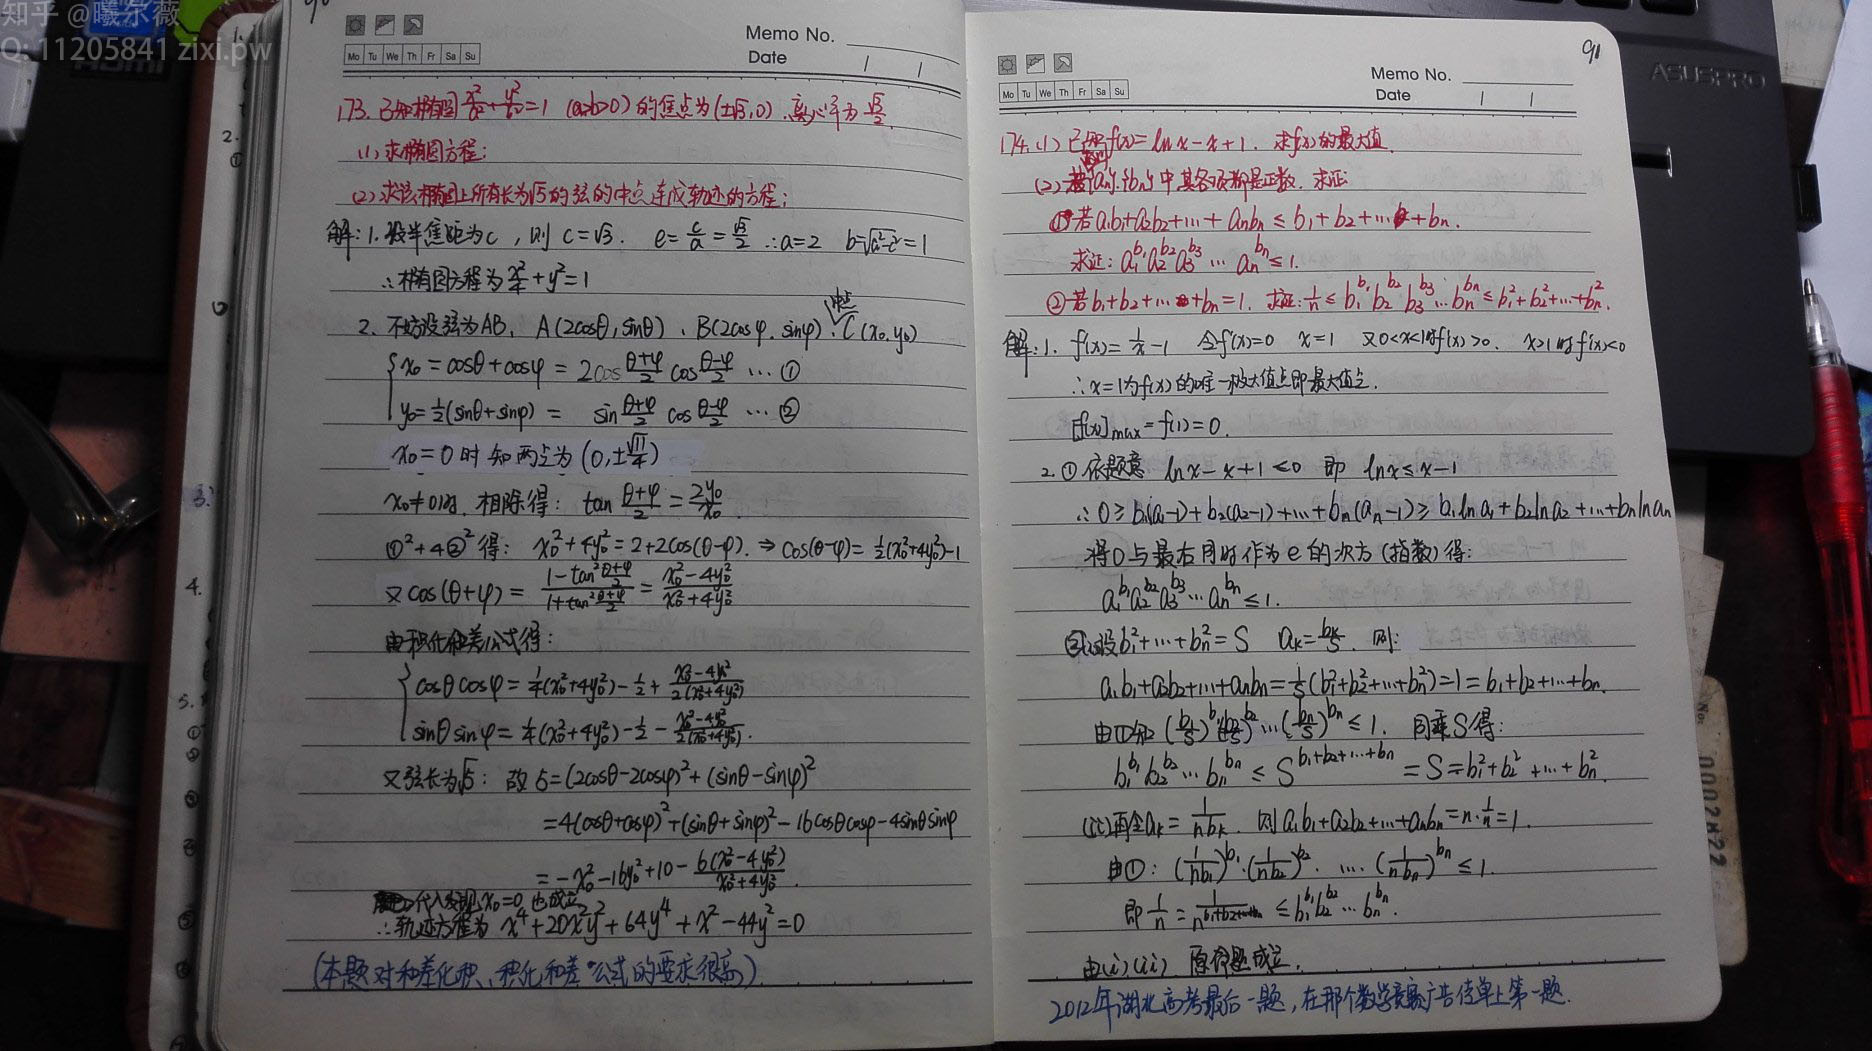 知乎 @曦尔薇
Q: 11205841 zixi.pw
90
Memo No.
Mo Tu We Th Fr Sa Su
Date / /
173. 已知椭圆 x²/a² + y²/b² = 1 (a>b>0) 的焦点为(±√3, 0). 离心率为 √3/2.
(1) 求椭圆方程;
(2) 求该椭圆上所有长为√5的弦的中点连成轨迹的方程;
解: 1. 设半焦距为c, 则 c=√3. e= c/a = √3/2 ∴a=2 b=√(a²-c²)=1
∴椭圆方程为 x²/4 + y² = 1
中点
2. 不妨设弦为AB, A(2cosθ, sinθ), B(2cosφ, sinφ), C(x₀, y₀)
x₀ = cosθ+cosφ = 2cos (θ+φ)/2 cos (θ-φ)/2 … ①
y₀ = ½(sinθ+sinφ) = sin (θ+φ)/2 cos (θ-φ)/2 … ②
x₀=0时 知两点为 (0, ±√11/4)
x₀≠0时, 相除得: tan (θ+φ)/2 = 2y₀/x₀.
①²+4②²得: x₀²+4y₀² = 2+2cos(θ-φ). ⇒ cos(θ-φ) = ½(x₀²+4y₀²)-1
又 cos(θ+φ) = (1-tan² (θ+φ)/2)/(1+tan² (θ+φ)/2) = (x₀²-4y₀²)/(x₀²+4y₀²)
由积化和差公式得:
cosθcosφ = ¼(x₀²+4y₀²) - ½ + (x₀²-4y₀²)/(2(x₀²+4y₀²))
sinθsinφ = ¼(x₀²+4y₀²) - ½ - (x₀²-4y₀²)/(2(x₀²+4y₀²)).
又弦长为√5: 故 5 = (2cosθ-2cosφ)² + (sinθ-sinφ)²
= 4(cosθ+cosφ)² + (sinθ+sinφ)² - 16cosθcosφ - 4sinθsinφ
= -x₀² - 16y₀² + 10 - 6(x₀²-4y₀²)/(x₀²+4y₀²).
代入发现x₀=0也成立
∴轨迹方程为 x⁴+20x²y²+64y⁴+x²-44y²=0
(本题对和差化积、积化和差公式的要求很高)
91
Memo No.
Mo Tu We Th Fr Sa Su
Date / /
174. (1) 已知f(x)= ln x - x + 1. 求f(x)的最大值.
(2) {aₙ}, {bₙ} 中其各项都是正数. 求证
① 若 a₁b₁+a₂b₂+…+aₙbₙ ≤ b₁+b₂+…+bₙ.
求证: a₁^b₁ a₂^b₂ a₃^b₃ … aₙ^bₙ ≤ 1.
② 若 b₁+b₂+…+bₙ=1. 求证: 1/n ≤ b₁^b₁ b₂^b₂ b₃^b₃ … bₙ^bₙ ≤ b₁²+b₂²+…+bₙ².
解: 1. f'(x)= 1/x - 1 令f'(x)=0 x=1 又0<x<1时f'(x)>0. x>1时f'(x)<0
∴x=1为f(x)的唯一极大值点即最大值点.
[f(x)]max = f(1) = 0.
2. ① 依题意 ln x - x + 1 ≤ 0 即 ln x ≤ x-1
∴ 0 ≥ b₁(a₁-1)+b₂(a₂-1)+…+bₙ(aₙ-1) ≥ b₁ln a₁+b₂ln a₂+…+bₙln aₙ
将0与最右同时作为e的次方(指数)得:
a₁^b₁ a₂^b₂ a₃^b₃ … aₙ^bₙ ≤ 1.
② (i)设 b₁²+…+bₙ² = S aₖ = bₖ/S. 则:
a₁b₁+a₂b₂+…+aₙbₙ = 1/S(b₁²+b₂²+…+bₙ²) = 1 = b₁+b₂+…+bₙ.
由①知 (b₁/S)^b₁ (b₂/S)^b₂ … (bₙ/S)^bₙ ≤ 1. 同乘S得:
b₁^b₁ b₂^b₂ … bₙ^bₙ ≤ S^(b₁+b₂+…+bₙ) = S = b₁²+b₂²+…+bₙ².
(ii)再令aₖ = 1/(nbₖ). 则 a₁b₁+a₂b₂+…+aₙbₙ = n·1/n = 1.
由①: (1/(nb₁))^b₁ · (1/(nb₂))^b₂ · … (1/(nbₙ))^bₙ ≤ 1.
即 1/n = 1/n^(b₁+b₂+…+bₙ) ≤ b₁^b₁ b₂^b₂ … bₙ^bₙ.
由(i)(ii) 原命题成立.
2012年湖北高考最后一题, 在那个数学竞赛广告传单上第一题.
ASUSPRO
0002822